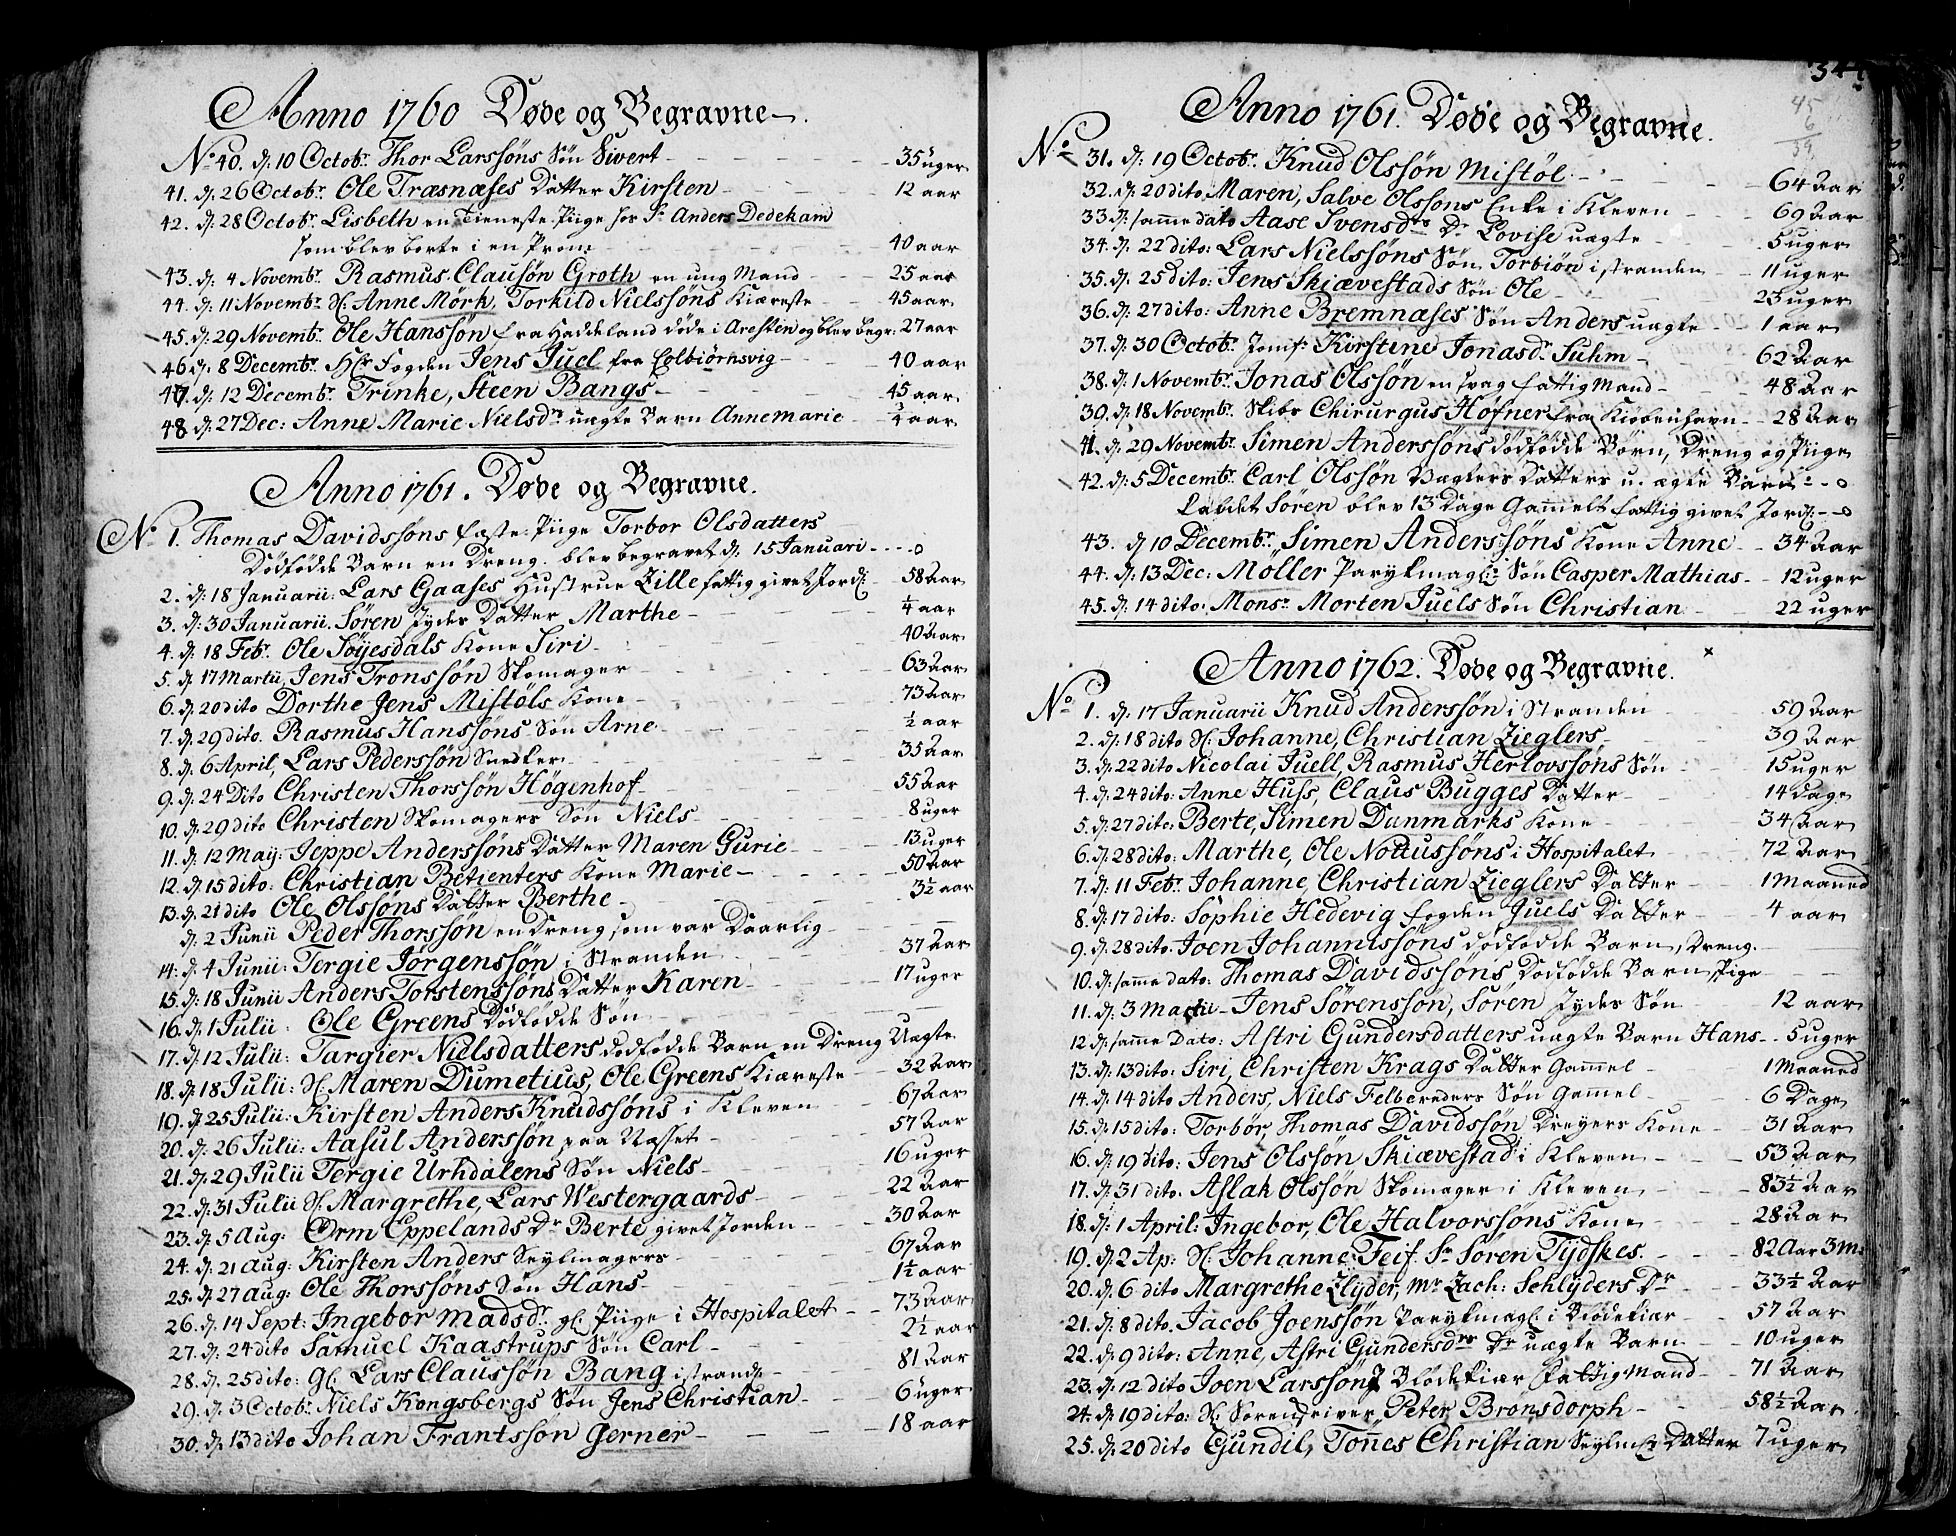 Anno 1760 Døde og Begravne
No 40. d: 10 Octobr. Thor Larssøns Søn Sivert 35 uger
41. d: 26 Octobr. Ole Træsnæses Datter Kirsten 12 aar
42. d: 28 Octobr Lisbeth en Tieneste Piige hos Sr Anders Dedekam
som blev borte i en Pram 40 aar
43. d: 4 Novembr. Rasmus Clausøn Groth en ung Mand 25 aar
44. d: 11 Novembr. Sl. Anne Mörk, Torkild Nielssøns Kiæreste 45 aar
45. d: 29 Novembr. Ole Hanssøn fra Haddeland døde i Aresten og blev begr: 27 aar
46 d: 8 Decembr. Hr Fogden Jens Juel fra Colbiörnsvig 40 aar
47. d: 12 Decembr. Trinke, Steen Bangs 45 aar
48. d: 27 Dec: Anne Marie Nielsdr uægte Barn Annemarie aar
Anno 1761. Døde og Begravne.
No 1. Thomas Davidssøns fæste-Piige Torbor Olsdatters
Dødfødde Barn en Dreng. blev begravet d: 15 Januari 0
2. d: 18 Januarii: Lars Gaases Hustrue Zille fattig givet Jord: 58 Aar
3. d: 30 Januarii. Søren Jydes Datter Marthe 1/4 aar
4. d: 18 Febr. Ole Søyesdals Kone Siri 40 Aar
5. d: 17 Martii, Jens Tronssøn Skomager 63 Aar
6. d: 20 dito Dorthe Jens Mistöls Kone 73 Aar
7. d: 29 dito. Rasmus Hanssøns Søn Arne 1/2 aar
8. d: 6 April, Lars Pederssøn Snedker 35 Aar
9. d: 24 Dito Christen Thorssøn Högenhof 55 Aar
10. d: 29 dito Christen Skomagers Søn Niels 8 uger
11. d: 12 May: Jeppe Anderssøns Datter Maren Gurie 13 uger
12. d: 15 dito: Christian Betienters Kone Marie 50 Aar
13. d: 21 dito Ole Olssøns Datter Berthe 3 1/2 aar
d: 2 Junii Peder Thorssøn en Dreng, som var Daarlig
14. d: 4 Junii: Tergie Jorgenssøn i Stranden 37 Aar
15. d: 18 Junii Anders Torstenssøns Datter Karen 17 uger
16. d: 1 Julii: Ole Greens Dødfødde Søn
17. d: 12 Julii: Targier Nielsdatters dødfødde Barn en Dreng Uægte
18. d: 18 Julii: Sl. Maren Dumetius, Ole Greens Kiæreste 32 Aar
19. d: 25 Julii: Kirsten Anders Knudssøns i Kleven 67 Aar
20. d: 26 Julii: Aasul Anderssøn paa Næsset 57 Aar
21. d: 29 Julii Tergie Urhdalens Søn Niels 16 uger
22. d: 31 Julii Sl. Margrethe, Lars Westergaards 22 Aar
23. d: 5 Aug: Orm Eppelands Dr Berte givet Jorden 30 Aar
24. d: 21 Aug: Kirsten Anders Seylmagers 67 Aar
25. d: 27 Aug: Ole Thorssøns Søn Hans 1 1/2 aar
26. d: 14 Sept: Ingebor Madsdr. gl. Piige i Hospitalet 73 aar
27. d: 24 dito Samuel Kaastrups Søn Carl 2 1/2 aar
28. d: 25 dito: gl. Lars Claussøn Bang i strand: 81 Aar
29. d: 3 Octobr. Niels Kongsbergs Søn Jens Christian 6 uger
30. d: 13 dito Johan Frantssøn Gerner 18 aar
Anno 1761. Døde og Begravne.
45
6
39
No 31. d: 19 Octobr. Knud Olssøn Mistöl 64 Aar
32. d: 20 dito Maren, Salve Olssøns Enke i Kleven 69 Aar
33 d: samme dato Aase Svensdrs Dr Lovise uægte 5 uger
34. d: 22 dito: Lars Nielssøns Søn Torbiørn i stranden 11 uger
35. d: 25 dito: Jens Skiævestads Søn Ole 23 uger
36. d: 27 dito: Anne Bremnæses Søn Anders uægte 1 aar
37. d: 30 Octobr. Jomfr. Kirstine Jonasdr. Suhm 62 Aar
38. d: 1 Novembr. Jonas Olssøn en svag fattig Mand 48 Aar
39. d: 18 Novembr. Skibs Chirurgus Höfner fra Kiöbenhavn 28 Aar
41. d: 29 Novembr. Simen Anderssøns dødfødde Børn, Dreng og Piige
42. d: 5 Decembr. Carl Olssøn Vægters Datters u. ægte Barn 0
kaldet Søren blev 13 Dage Gammelt fattig givet Jord: 0
43. d 10 Decembr. Simen Anderssøns Kone Anne 34 Aar
44. d: 13 Dec: Møller Parykmag: Søn Casper Mathias 12 uger
45. d: 14 dito: Monsr. Morten Juels Søn Christian 22 uger
Anno 1762. Døde og Begravne.
No 1. d: 17 Januarii Knud Anderssøn i Stranden 59 Aar
2. d: 18 dito Sl. Johanne, Christian Zieglers 39 Aar
3. d: 22 dito Nicolai Juell, Rasmus Herlovssøns Søn 15 uger
4. d: 24 dito: Anne Huss, Claus Bugges Datter 14 dage
5. d: 27 dito: Berte, Simen Danmarks Kone 34 Aar
6. d: 28 dito: Marthe, Ole Nottussøns i Hospitalet 72 Aar
7. d: 11 Febr. Johanne, Christian Zieglers Datter 1 Maaned
8. d: 17 dito: Sophie Hedevig fogden Juels Datter 4 aar
9. d: 28 dito: Joen Johannissøns dødfødde Barn, Dreng.
10. d: samme dato: Thomas Davidssøns Dødfødde Barn, Pige
11. d: 3 Martii Jens Sørenssøn, Søren Jydes Søn 12 aar
12 d: samme Dato: Astri Gundersdatters uægte Barn Hans 5 uger
13. d: 13 dito: Siri, Christen Krags Datter Gammel 1 Maaned
14. d: 14 dito Anders, Niels Felbereders Søn Gammel 6 Dage
15. d: 15 dito: Torbør, Thomas Davidssøn Dreyers Kone 31 Aar
16. d: 19 dito: Jens Olssøn Skiævestad i Kleven 53 Aar
17. d: 31 dito: Aslak Olssøn Skomager i Kleven 83 1/2 Aar
18. d: 1 April: Ingebor, Ole Halvorssøns Kone 28 Aar
19. d: 2 Ap: Sl. Johanne Feif Sr Søren Tydskes 82 Aar 3 m:
20. d: 6 dito Margrethe Zlyder, Mr Zach: Schlyders Dr 33 1/2 Aar
21. d: 8 dito. Jacob Joenssøn Parykmag: i Blödekiær 57 Aar
22. d: 9 dito: Anne, Astri Gundersdrs Dr uægte Barn 10 uger
23. d: 12 dito Joen Larssøn, Blödekiær fattig Mand 71 Aar
24. d: 19 dito: Sl. Sorenskriver Peter Bronsdorph 58 1/2 Aar
25. d: 20 dito Gundil, Tönnes Christian Seylm: Datter 7 uger